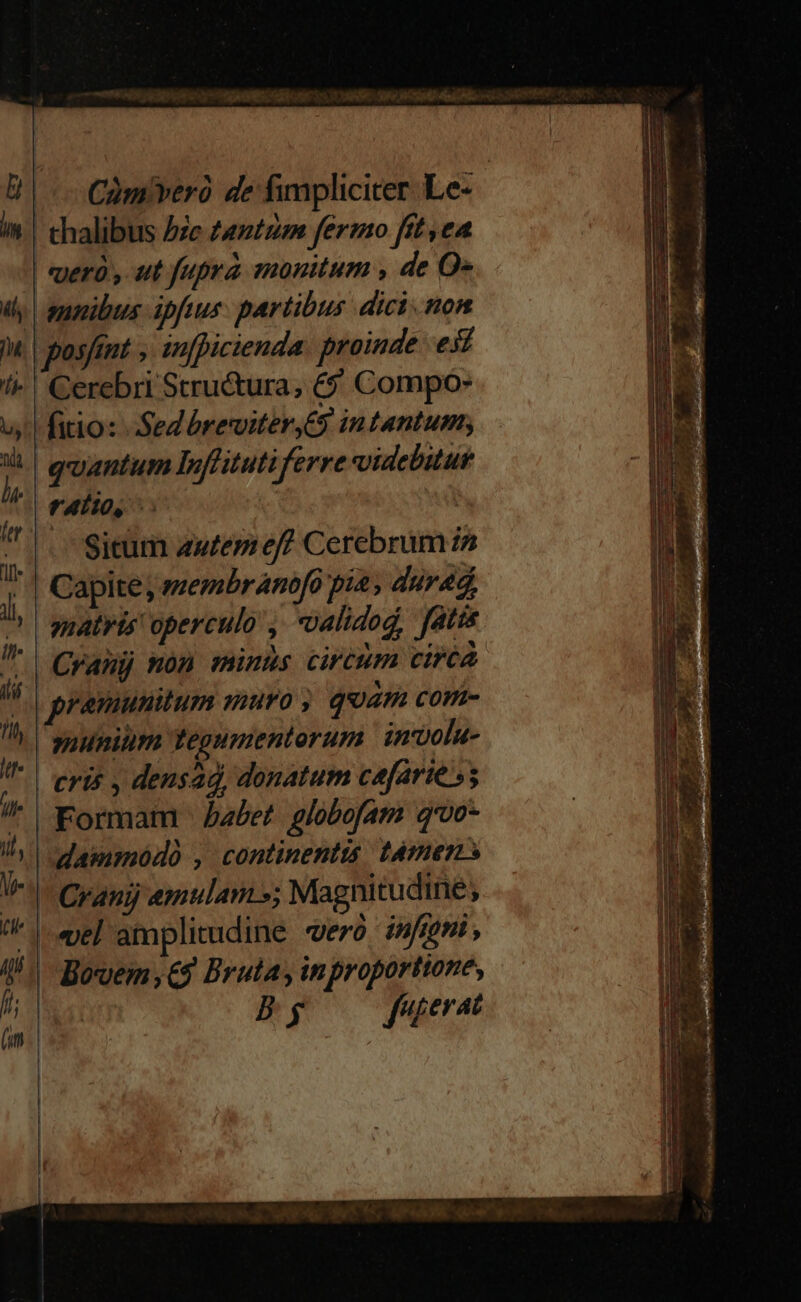 Cùm verò de simpliciter Le-
thalibus hîc tantùm sermo sit, ea
verò, ut suprà monitum, de O-
mnibus ipsius partibus dici non
possint, inspicienda proinde est
Cerebri Structura, & Compo-
sitio: Sed breviter, & in tantum,
qvantum Instituti ferre videbitur
ratio,
Situm autem est Cerebrum in
Capite, membranoso piæ, duræq́,
matris operculo, validoq́, satis
Cranij non minùs circùm circà
præmunitum muro, qvàm com-
munium tegumentorum involu-
cris, densâq́, donatum cæsarie;
Formam habet globosam qvo-
dammodò, continentis tamen
Cranij æmulam; Magnitudine,
vel amplitudine verò insigni,
Bovem, & Bruta, in proportione,
B 5 superat